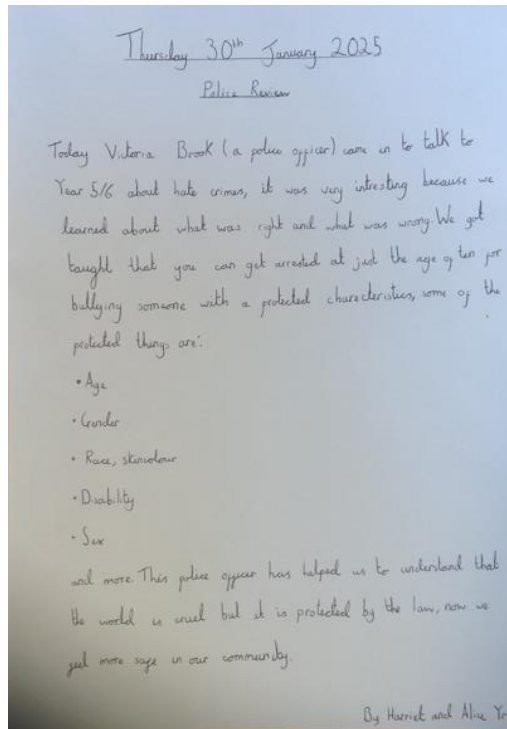 Thursday 30th January 2025
Police Review
Today Victoria Brook (a police officer) came in to talk to
Year 5/6 about hate crimes, it was very intresting because we
learned about what was right and what was wrong. We got
taught that you can get arrested at just the age of ten for
bullying someone with a protected characteristics, some of the
protected things are:
• Age
• Gender
• Race, skincolour
• Disability
• Sex
and more. This police officer has helped us to understand that
the world is cruel but it is protected by the law, now we
feel more safe in our community.
By Harriet and Alice Yr